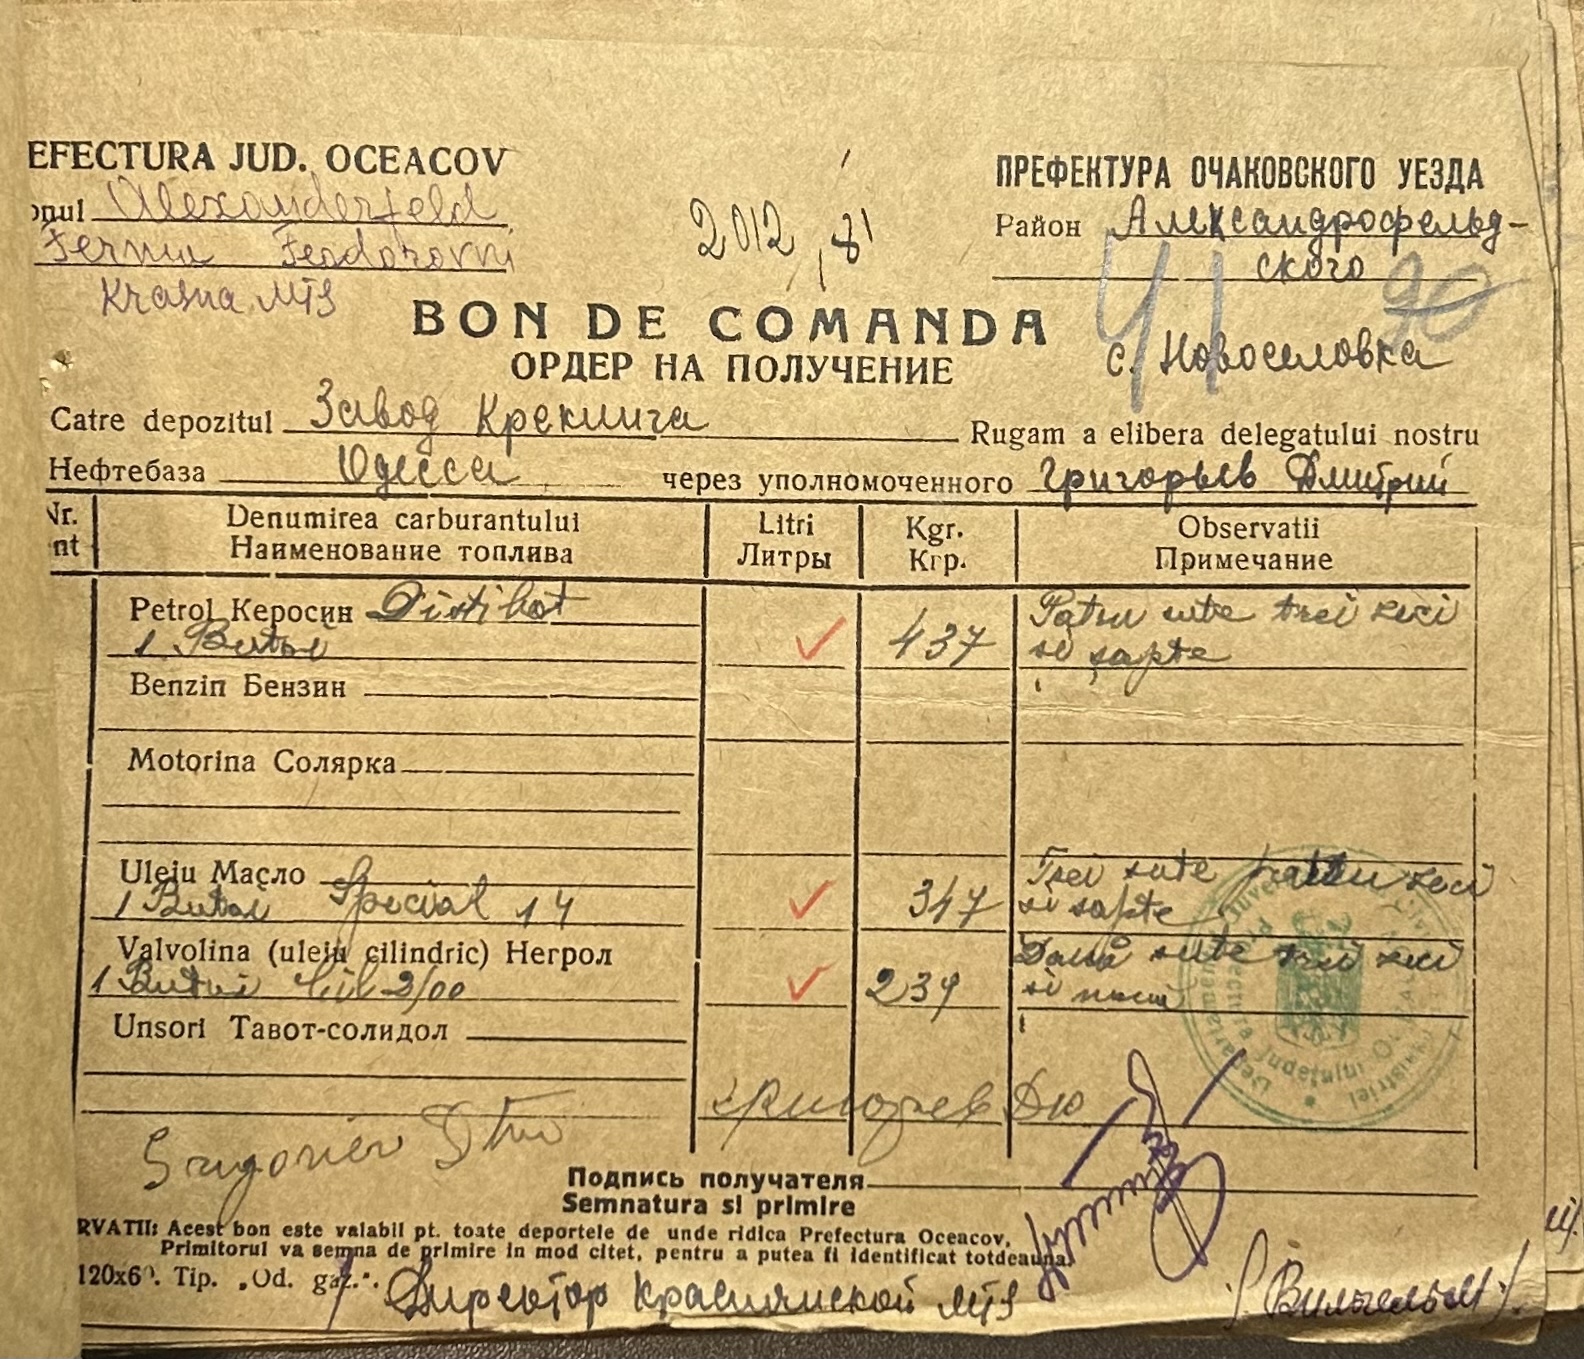 EFECTURA JUD. OCEACOV
onul Alexanderfeld
Ferma Feodorovni
Krasna MTS
2012
ПРЕФЕКТУРА ОЧАКОВСКОГО УЕЗДА
Район Александрофельд-
ского
41 90
с. Новоселовка
BON DE COMANDA
ОРДЕР НА ПОЛУЧЕНИЕ
Catre depozitul Завод Крекинга Rugam a elibera delegatului nostru
Нефтебаза Одесса через уполномоченного Григорьев Дмитрий
Nr. Denumirea carburantului Litri Kgr. Observatii
nt Наименование топлива Литры Кгр. Примечание
Petrol Керосин Distilat 437 Patru sute trei zeci
1 Butoi si şapte
Benzin Бензин
Motorina Солярка
Uleiu Масло Trei sute patru zeci
1 Butoi Special 14 347 si sapte
Valvolina (uleiu cilindric) Негрол Două sute trei zeci
1 Butoi Cil 2/00 239 si nouă
Unsori Тавот-солидол
Григорьев Дм
Grigoriev Dm
Подпись получателя
Semnatura si primire
RVATII: Acest bon este valabil pt. toate deportele de unde ridica Prefectura Oceacov.
Primitorul va semna de primire in mod citet, pentru a putea fi identificat totdeauna.
120x60. Tip. „Od. gaz.".
Директор Краснянской МТS /Вильгельм/